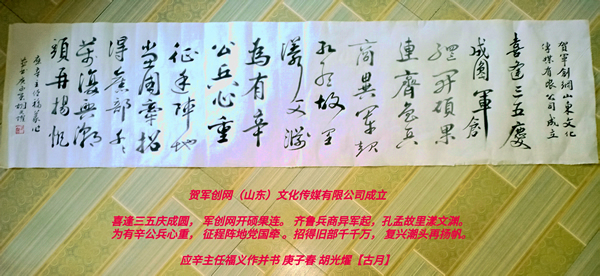 贺军创網山东文化
传媒有限公司成立
喜逢三五慶
成圆軍创
網开硕果
連齊鲁兵
商異军起
孔孟故里
漾文渊
為有辛
公兵心重
征程阵地
党国牵招
得舊部千
萬復興潮
頭再揚帆
贺军创网（山东）文化传媒有限公司成立
喜逢三五庆成圆， 军创网开硕果连。 齐鲁兵商异军起，孔孟故里漾文渊。
为有辛公兵心重， 征程阵地党国牵 。招得旧部千千万， 复兴潮头再扬帆。
应辛主任福义作并书 庚子春 胡光燿【古月】